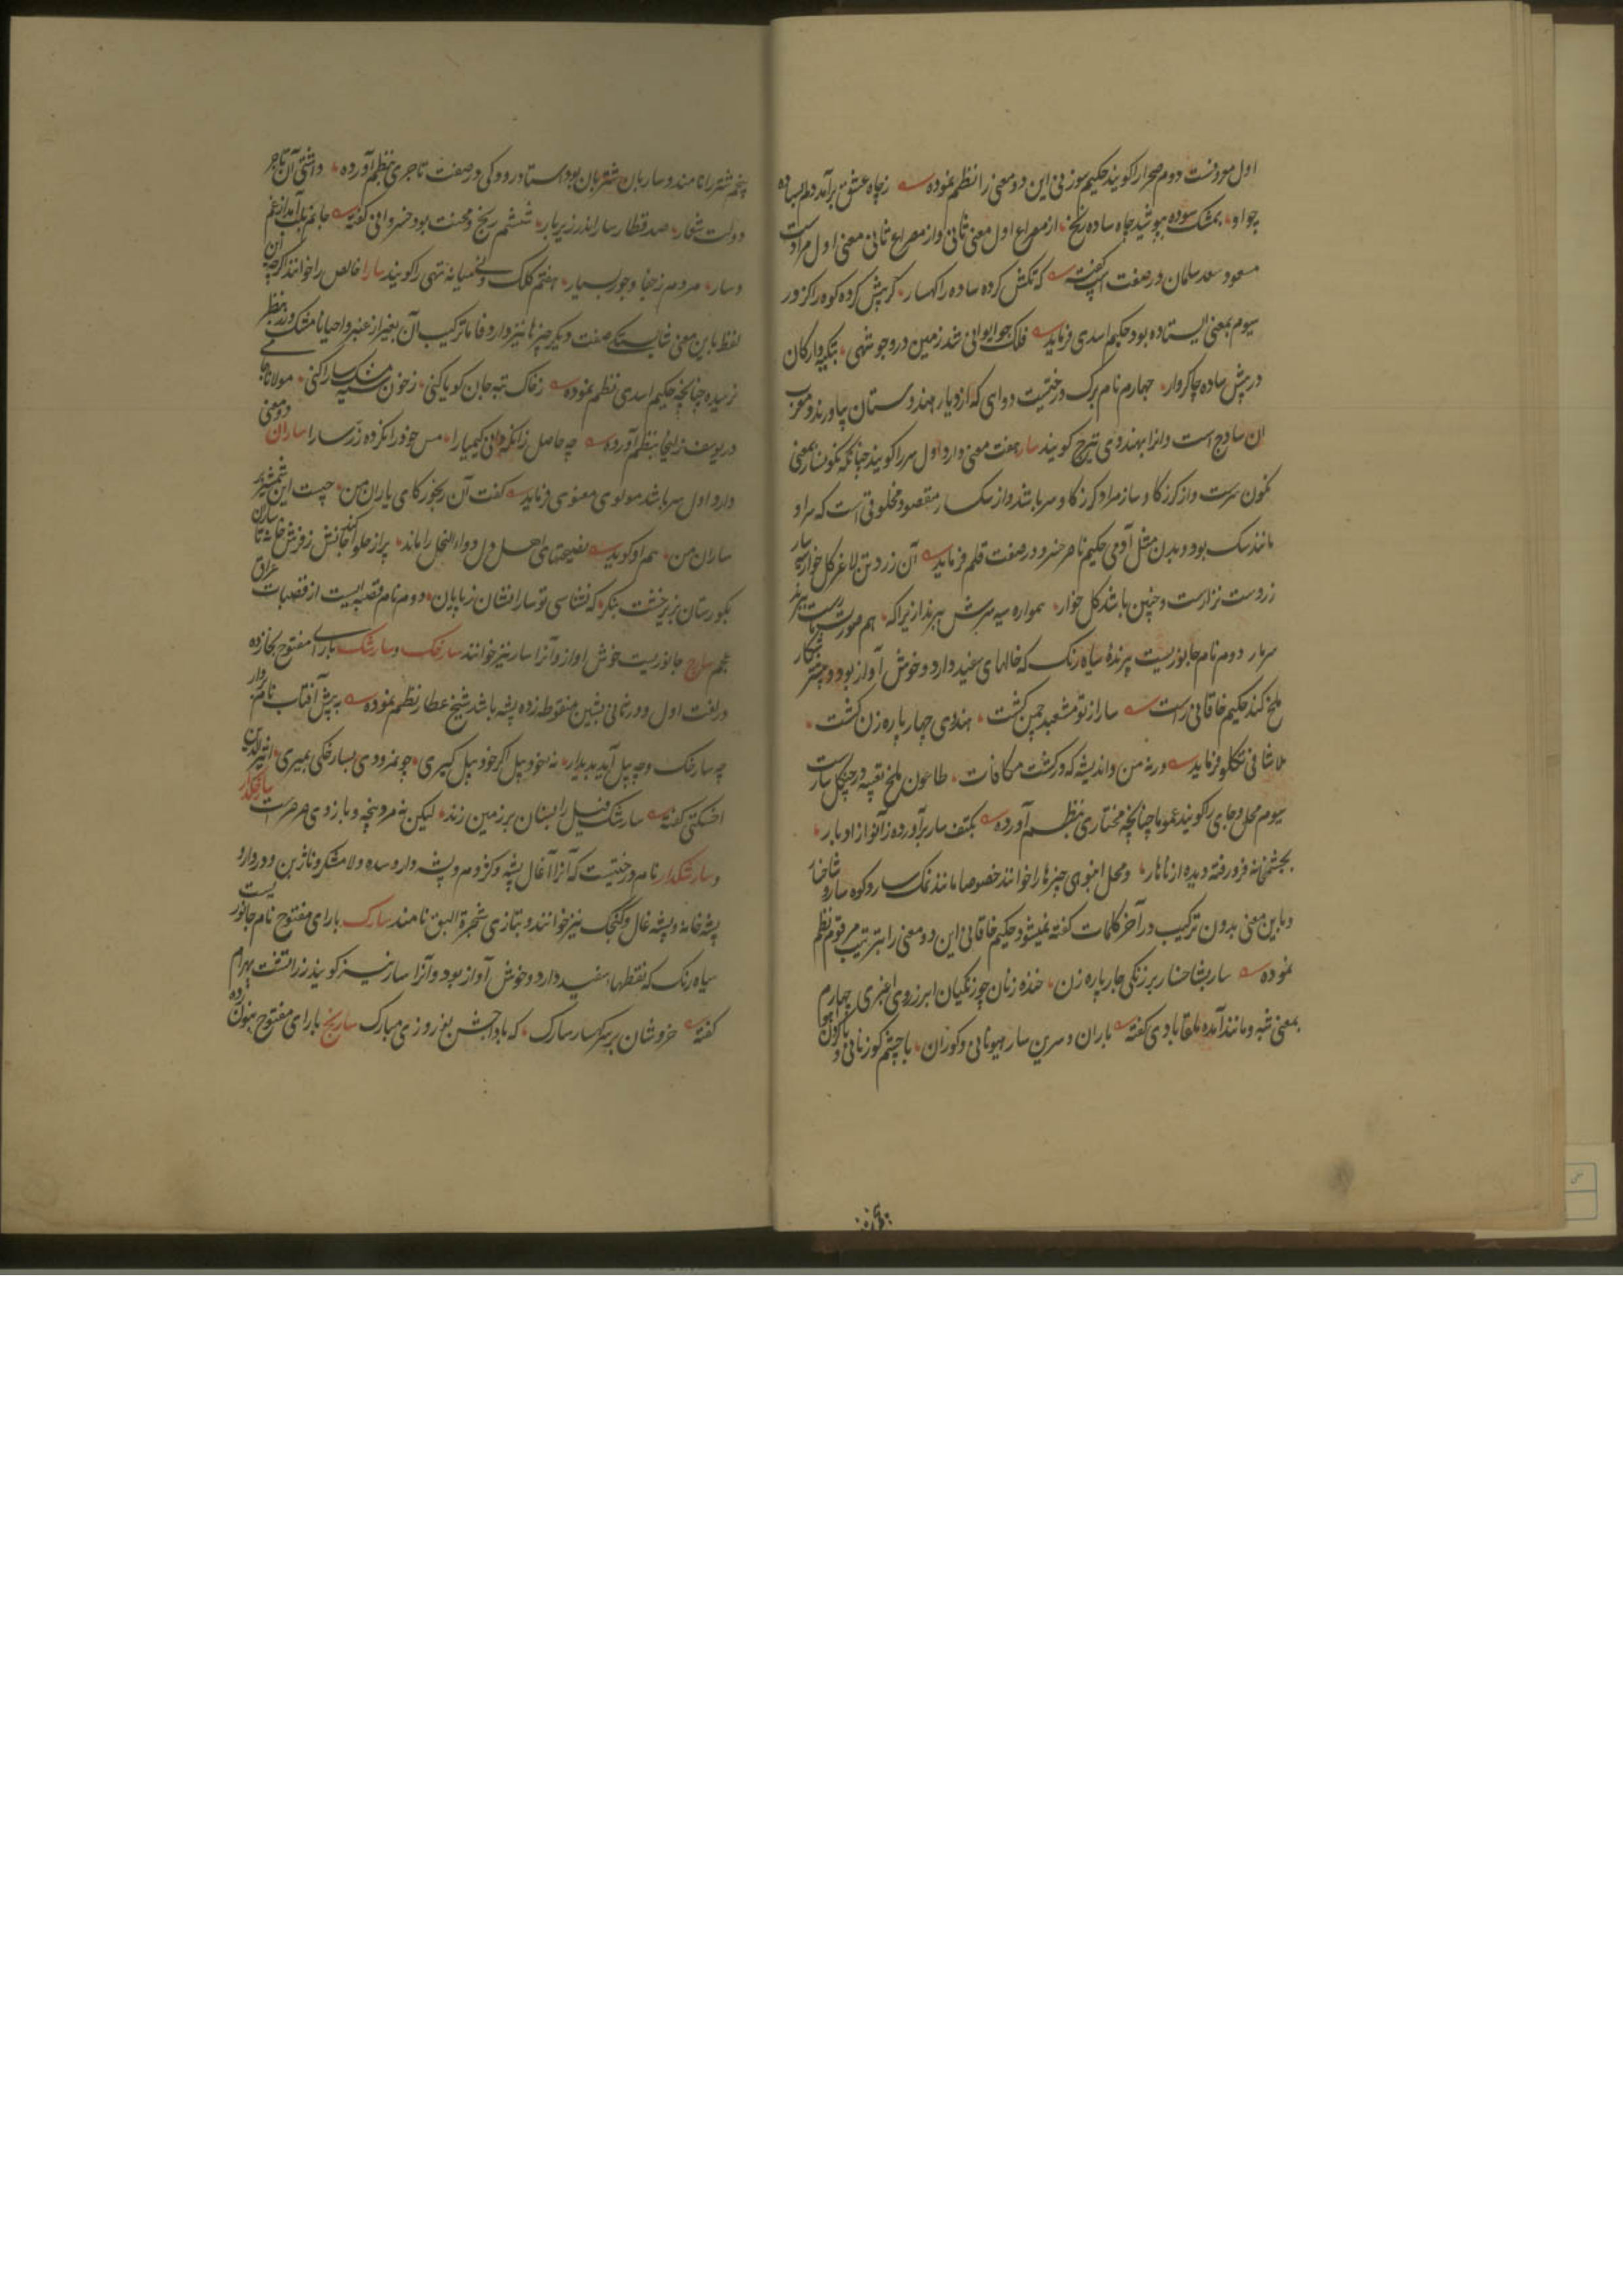 اول معروفست دوم صحرا را کویند حکیم سوزنی این دو معنی را نظم نموده زچاه عشق برآمد دلم بساده
چو او بمشک سوده بپوشید چاه ساده زنخ از مصراع اول معنی ثانی و از مصراع ثانی معنی اول مرادست
مسعود سعد سلمان در صفت اسپ کفته که تکش کرده ساده را کهسار کرپیش کرده کوه را کردر
سیوم بمعنی ایستاده بود حکیم اسدی فرماید فلک چو ایوانی شد زمین درو چو شهی بتکیه دار کان
در پیش ساده چاکروار چهارم نام برک درختیست دوای که از دیار هندوستان بیاورند و معرب
ان ساذج است و انرا بهندوی تیزج کویند سار هفت معنی دارد اول سر را کویند چنانکه نکونسار بمعنی
نکون سرست و از کرز کاو سار مراد کرز کاو سر باشد و از سکسار مقصود مخلوقی است که سر او
مانند سک بود و بدن مثل آدمی حکیم ناصر خسرو در صفت قلم فرماید آن زرد تن لاغر کل خوار سیه سار
زردست نزارست و چنین باشد کل خوار همواره سیه سرش ببرند ازیراکه هم صورت مارست و ببرند
سر مار دوم نام جانوریست پرنده سیاه رنک که خالهای سفید دارد و خوش آواز بود و بیشتر شکار
ملخ کند حکیم خاقانی راست سار از تو مشعبد چمن کشت هندوی چهار پاره زن کشت
ملا شانی تکلو فرماید ورنه من و اندیشه که در کشت مکافات طاعون ملخ تعبیه در چنکل سارست
سیوم محل و جای را کویند عموما چنانچه مختاری بنظم آورده بکتف سار برآورده زانو از ادبار
بچشمخانه فرو رفته دیده از ناهار و محل انبوی چیزها را خوانند خصوصا مانند نمکسار و کوهسار و شاخسار
و باین معنی بدون ترکیب در آخر کلمات کفته نمیشود حکیم خاقانی این دو معنی را بترتیب مرقوم نظم
نموده سار بشاخسار بر زنکی چار پاره زن خنده زنان چو زنکیان ابر ز روی اغبری چهارم
بمعنی شبه و مانند آمده ملقابادی کفته باران و سرین سار هیونانی و کوران با چشم کوزنانی و با کردن آهو
پنجم شتر را نامند و ساربان شتربان بود استاد رودکی در صفت تاجری بنظم آورده داشتی آن تاجر
دولت شعار صد قطار سار اندر زیر بار ششم رنج و محنت بود خسروانی کفته جانم بلب آمد از غم
و سار مردم ز جفا و جور بسیار هفتم کلک و نی میانه تهی را کویند سارا خالص را خوانند اکرچه این
لفظ باین معنی شایستکی صفت دیکر چیزها نیز دارد فاما ترکیب آن بغیر از عنبر و احیانا مشک و زر بنظر
نرسیده چنانچه حکیم اسدی نظم نموده ز خاک تیه جان کویا کنی ز خون سیه مشک سارا کنی مولانا جامی
در یوسف زلیخا بنظم آورده چه حاصل زانکه دانی کیمیا را مس خود را نکرده زر سارا ساران دو معنی
دارد اول سر باشد مولوی معنوی فرماید کفت آن رنجور کای یاران من چیست این شمشیر بر
ساران من هم او کوید نصیحتهای اهل دل دواء النحل را ماند پر از حلوا کند جانش ز فرش خانه تا ساران
بکورستان بزیر خشت بنکر که نشناسی تو ساران شان ز پایان دوم نام قصبه ایست از قصبات عراق
عجم سارج جانوریست خوش اواز و آنرا سار نیز خوانند سارخک و سارشک با رای مفتوح بخا زده
در لغت اول و در ثانی بشین منقوطه زده پشه باشد شیخ عطار نظم نموده به پیش آفتاب نام بردار
چه سارخک و چه پیل آید پدیدار نه خود پیل اکر خود پیل کیری چو نمرودی بسارخکی بمیری اثیرالدین
اخسیکتی کفته سارشک فیل را بسنان بر زمین زند لیکن نه مرد پنجه و بازوی صرصرست سارخکدار
و سارشکدار نام درختیست که آنرا آغال پشه و کژدم و پشه دار و سده و لامشکر و نارون و دردار و
پشه خانه و پشه غال و کنجک نیز خوانند و بتازی شجرة البق نامند سارک با رای مفتوح نام جانوریست
سیاه رنک که نقطهاء سفید دارد و خوش آواز بود و آنرا سار نیز کویند زراتشت بهرام
کفته خروشان بر سر کهسار سارک که بادا جشن نوروزی مبارک سارنج با رای مفتوح بنون زده